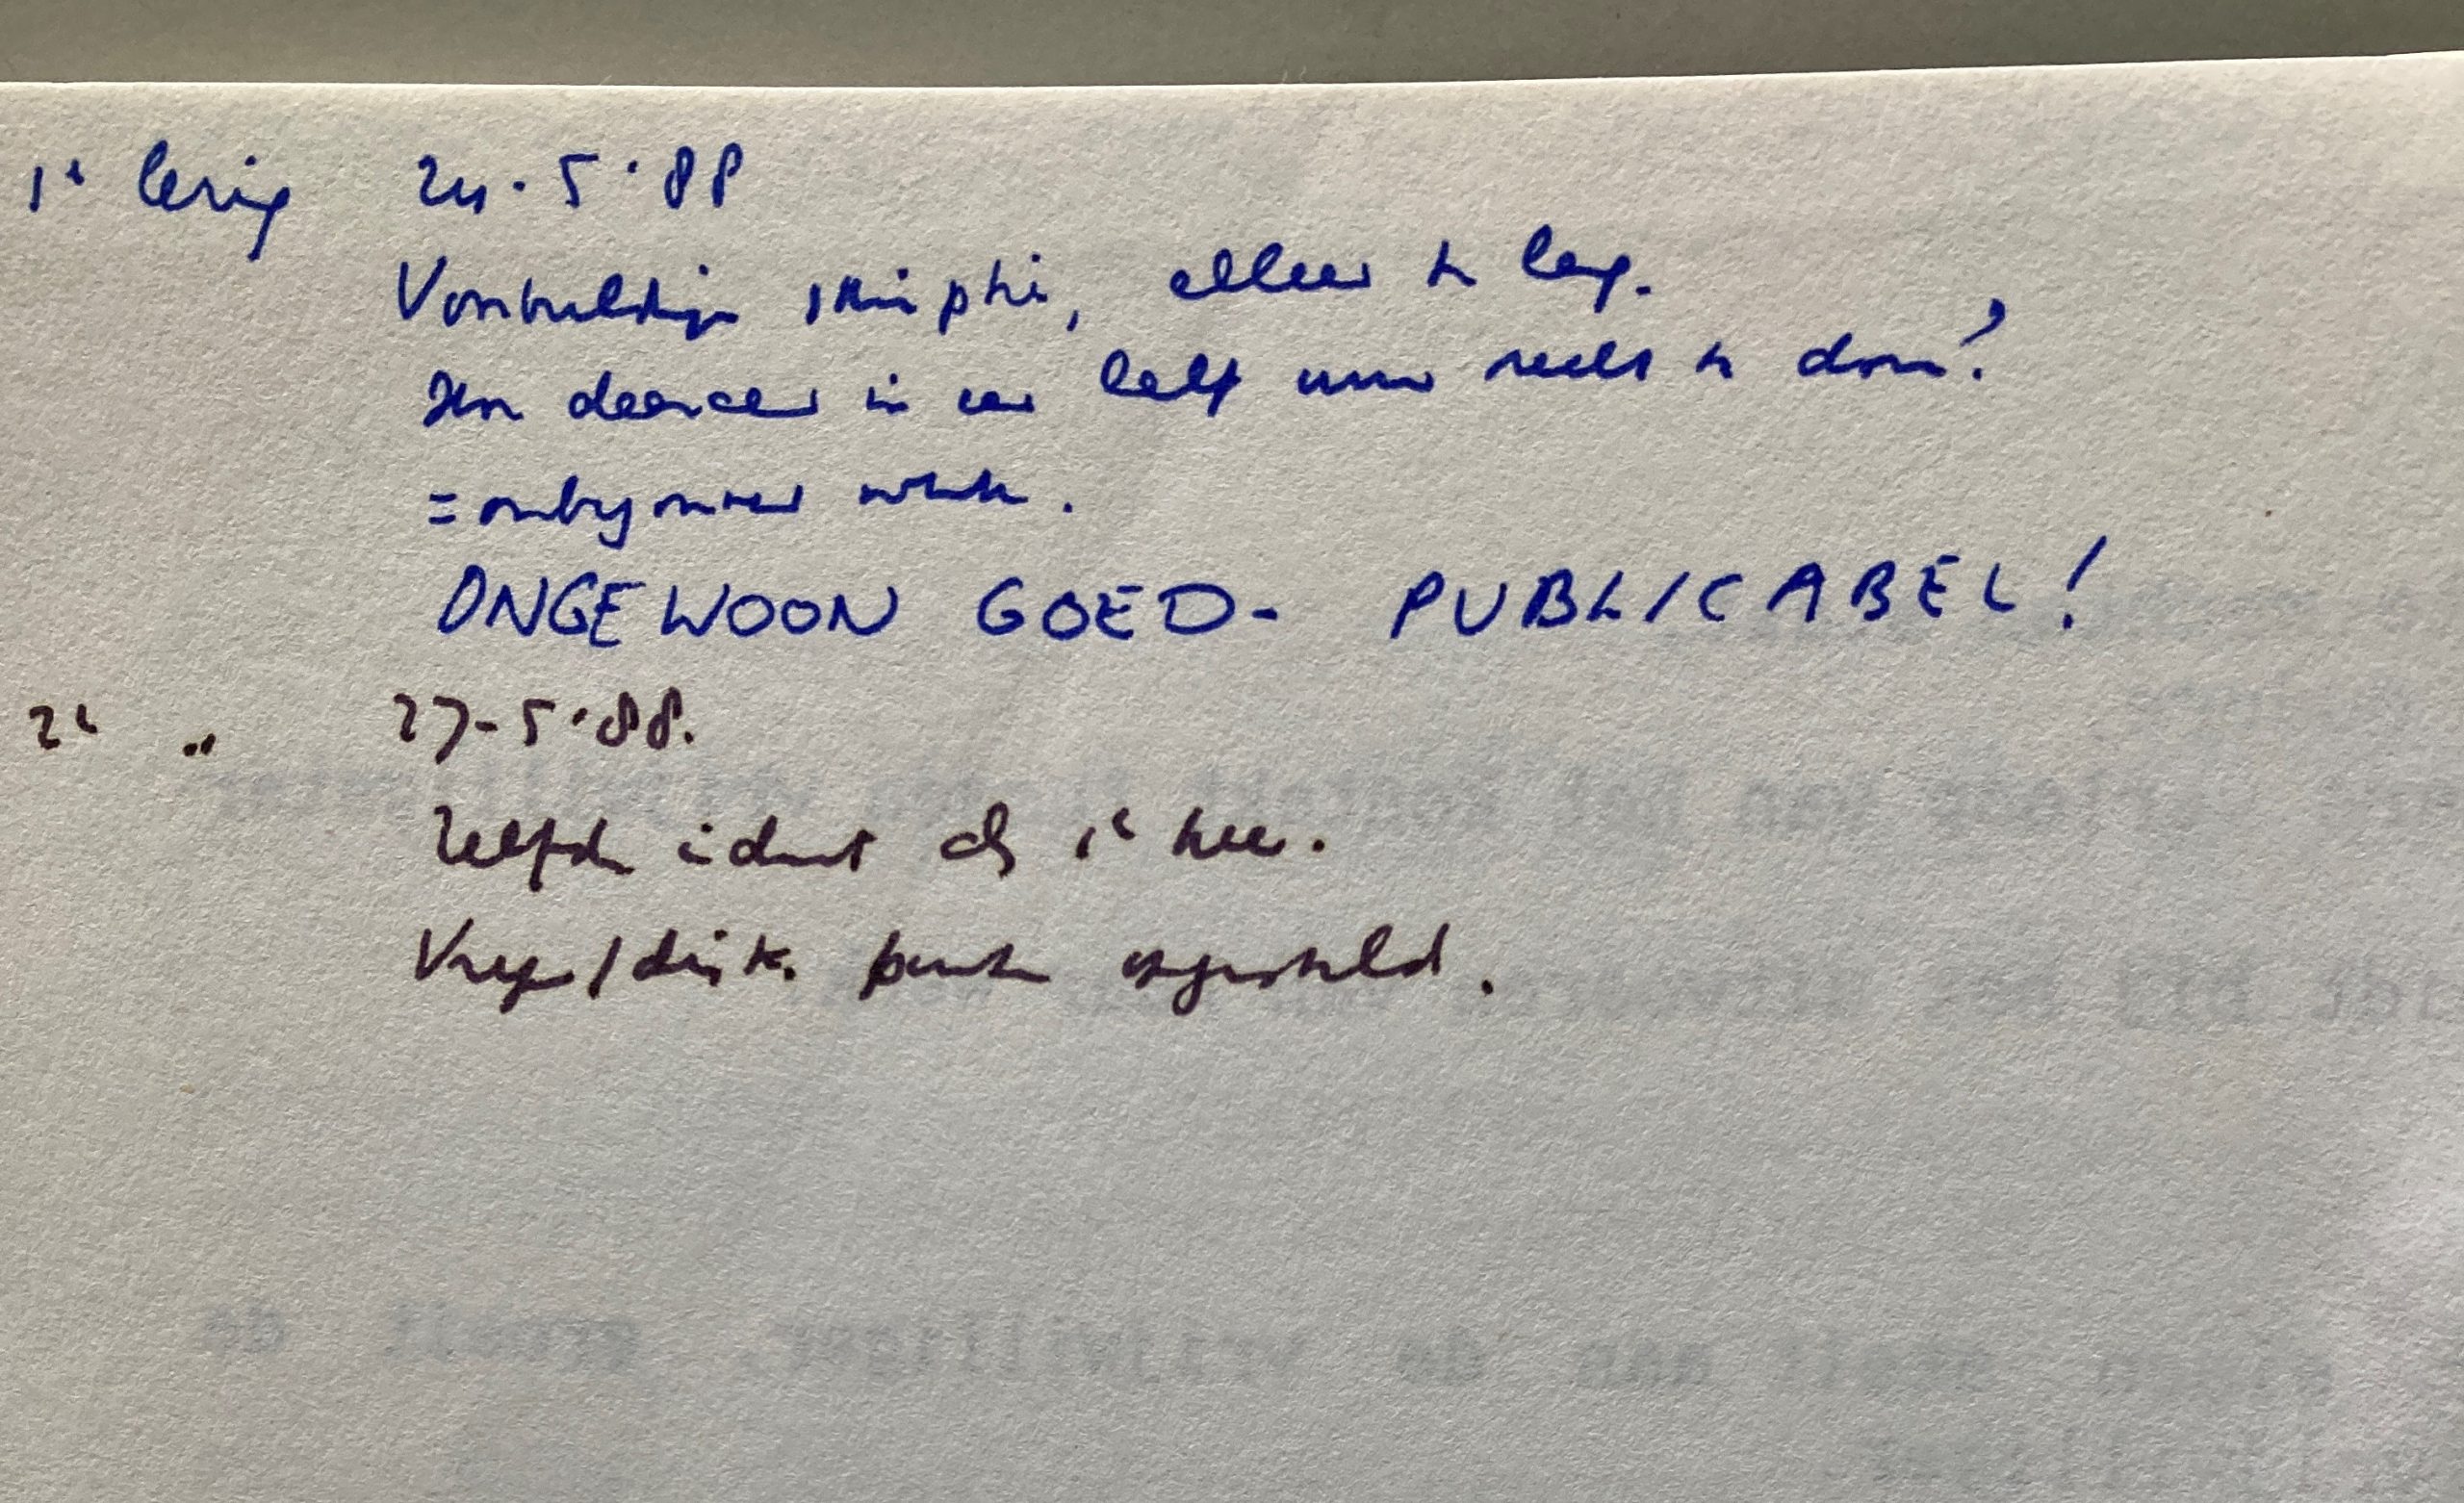 1e lezing 24.5.88
Voorbeeldige scriptie, alleen te lang.
Hoe daarover in een half uur recht te doen?
= onbegonnen werk.
ONGEWOON GOED- PUBLICABEL!
2e " 27-5-88.
Zelfde indruk als 1e keer.
Vragen/disk. punten opgesteld.